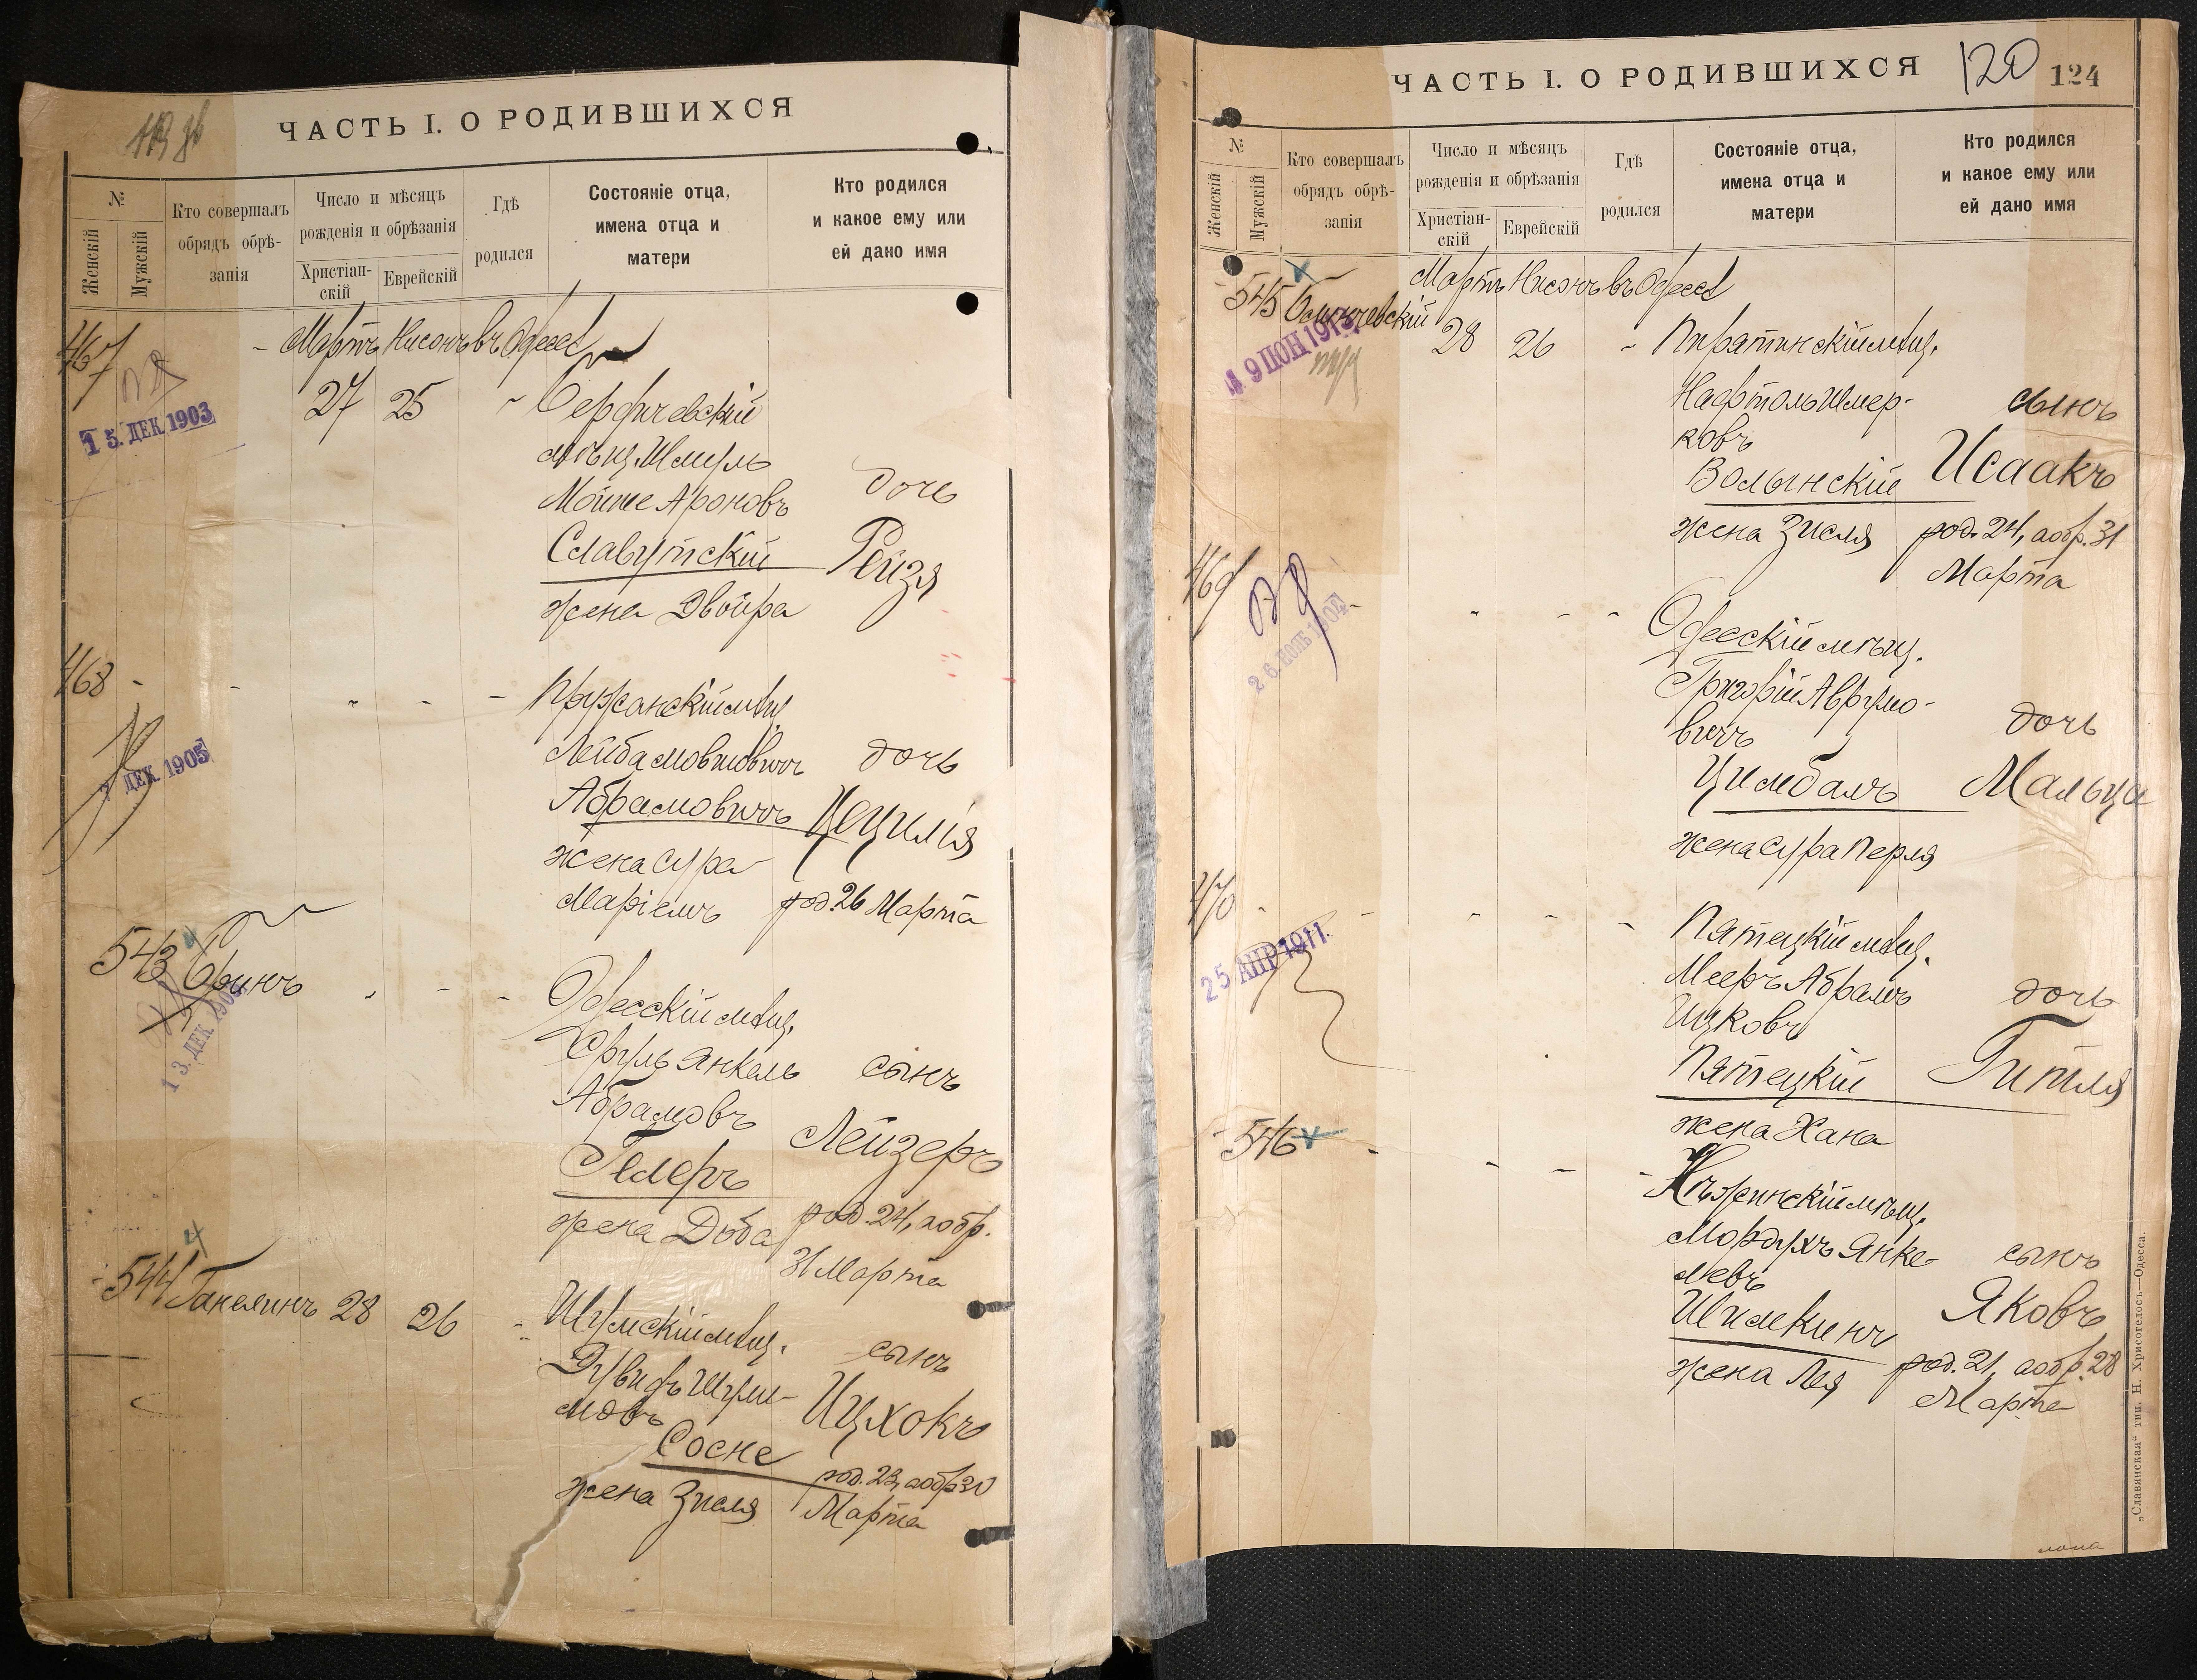 ЧАСТЬ I. О РОДИВШИХСЯ
№
Женскій
Мужскій
Кто совершалъ
обрядъ обрѣ-
занія
Число и мѣсяцъ
рожденія и обрѣзанія
Христіан-
скій
Еврейскій
Гдѣ
родился
Состояніе отца,
имена отца и
матери
Кто родился
и какое ему или
ей дано имя
467
Мартъ Нисонъ въ Одессѣ
27 25
15. ДЕК. 1903
Бердичевскій
мѣщ. Шмуль
Мойше Ароновъ
Славутскій
жена Двойра
дочь
Рейзя
468
ДЕК. 1905
Пружанскій мѣщ.
Лейба Мовшовичъ
Абрамовичъ
жена Сура
Маріемъ
дочь
Цецилія
род. 26 Марта
543 Бринъ
13. ДЕК.
Одесскій мѣщ.
Сруль Янкель
Абрамовъ
Гелеръ
жена Доба
сынъ
Лейзеръ
род. 24, а обр.
31 Марта
544 Ганелинъ 28 26
Шумскій мѣщ.
Дувидъ Шули-
мовъ
Сосне
жена Зисля
сынъ
Ицхокъ
род. 23, а обр. 30
Марта
ЧАСТЬ I. О РОДИВШИХСЯ
120
124
№
Женскій
Мужскій
Кто совершалъ
обрядъ обрѣ-
занія
Число и мѣсяцъ
рожденія и обрѣзанія
Христіан-
скій
Еврейскій
Гдѣ
родился
Состояніе отца,
имена отца и
матери
Кто родился
и какое ему или
ей дано имя
545
Мартъ Нисонъ въ Одессѣ
28 26
Пирятинскій мѣщ.
Нафтоль Шмер-
ковъ
Волынскій
жена Зисля
сынъ
Исаакъ
род. 24, а обр. 31
Марта
469
Одесскій мѣщ.
Григорій Аврумо-
вичъ
Цимбалъ
жена Сура Перля
дочь
Мальца
470
25 АПР 1911.
Пятецкій мѣщ.
Мееръ Абрамъ
Ицковъ
Пятецкій
жена Хана
дочь
Гитля
546
Нѣжинскій мѣщ.
Мордухъ Янке-
левъ
Шимкинъ
жена Лея
сынъ
Яковъ
род. 21, а обр. 28
Марта
„Славянская“ тип. Н. Хрисогелосъ—Одесса.